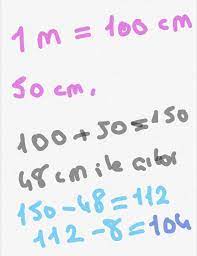 1 m = 100 cm
50 cm.
100 + 50 = 150
48 cm ile
150 - 48 = 112
112 - 8 = 104